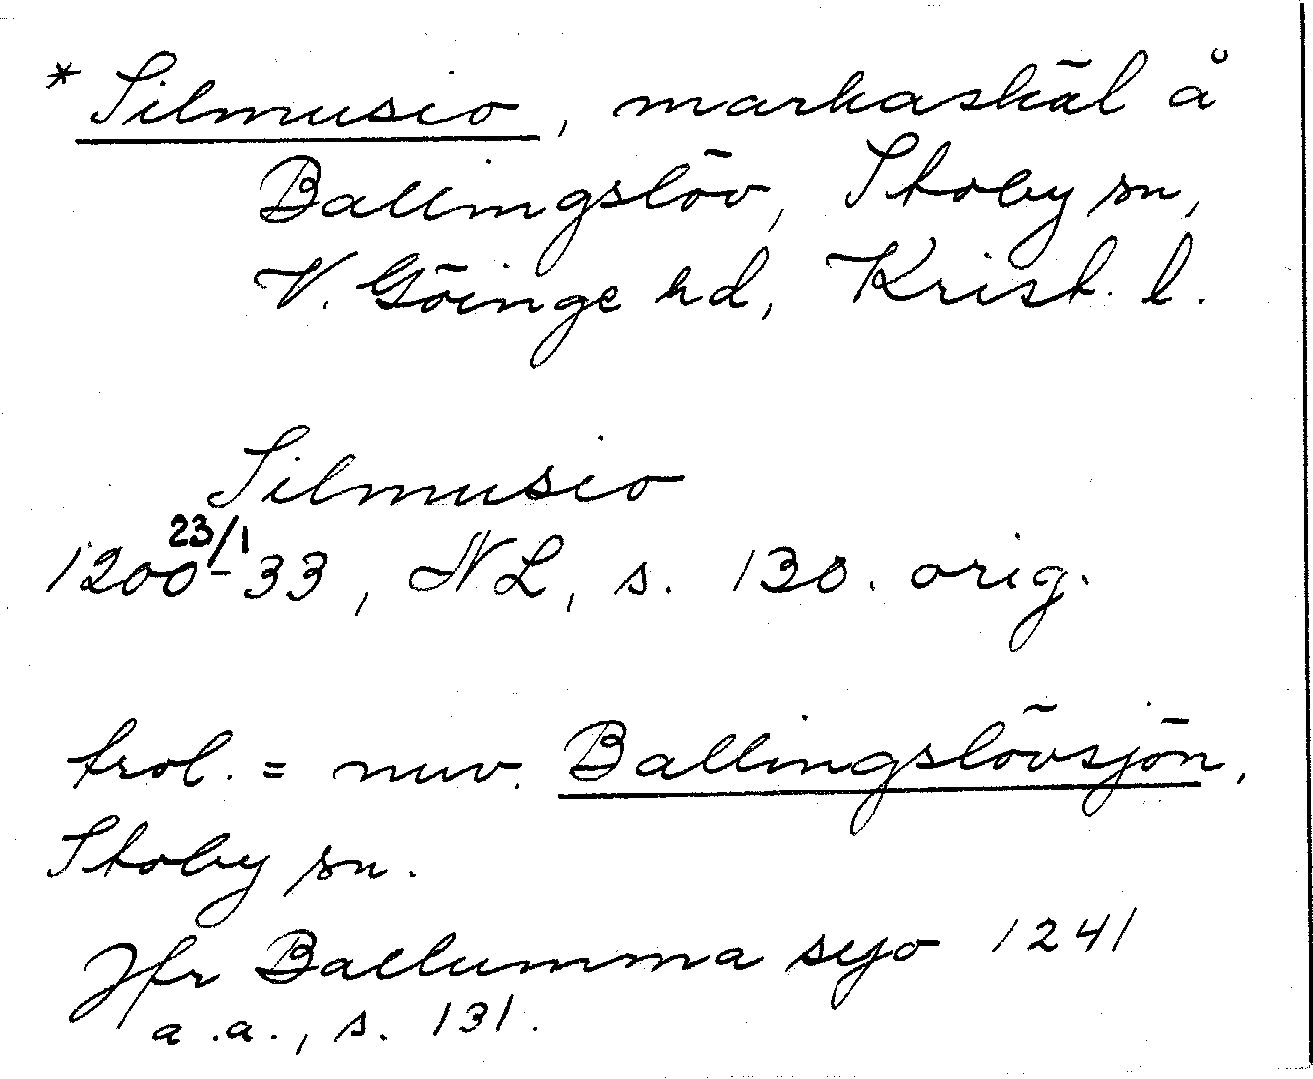 * Silmusio, markaskäl å
Ballingslöv, Stoby sn,
V. Göinge hd, Krist. l.
Silmusio
1200 23/1-33, NL, s. 130. orig.
trol. = nuv. Ballingslövsjön,
Stoby sn.
Jfr Ballumma syo 1241
a.a., s. 131.